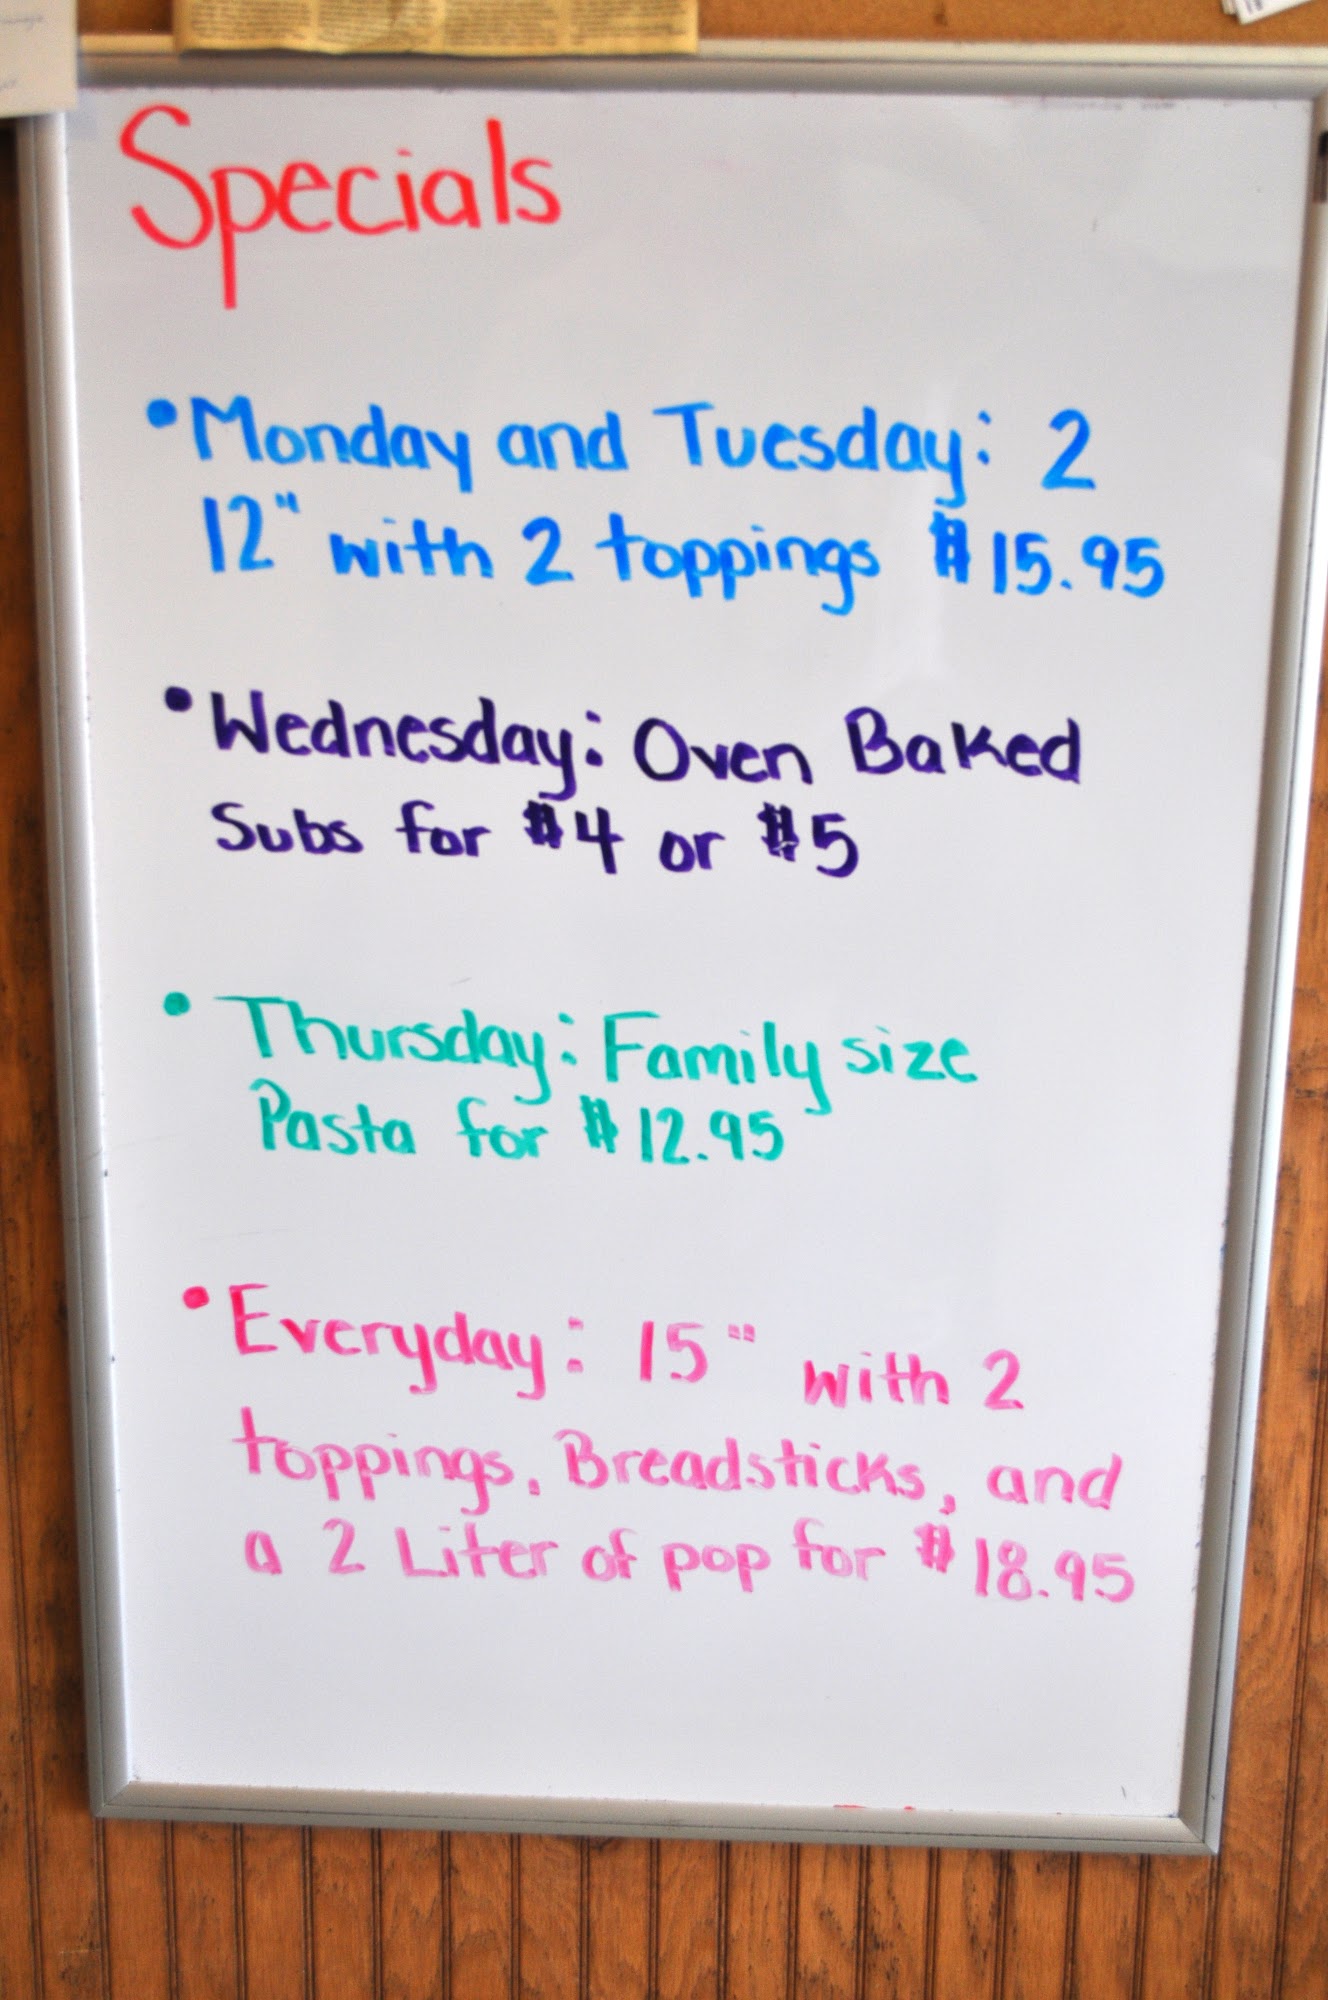 Specials
• Monday and Tuesday: 2
12" with 2 toppings $15.95
• Wednesday: Oven Baked
Subs for $4 or $5
• Thursday: Family size
Pasta for $12.95
• Everyday: 15" with 2
toppings, Breadsticks, and
a 2 Liter of pop for $18.95